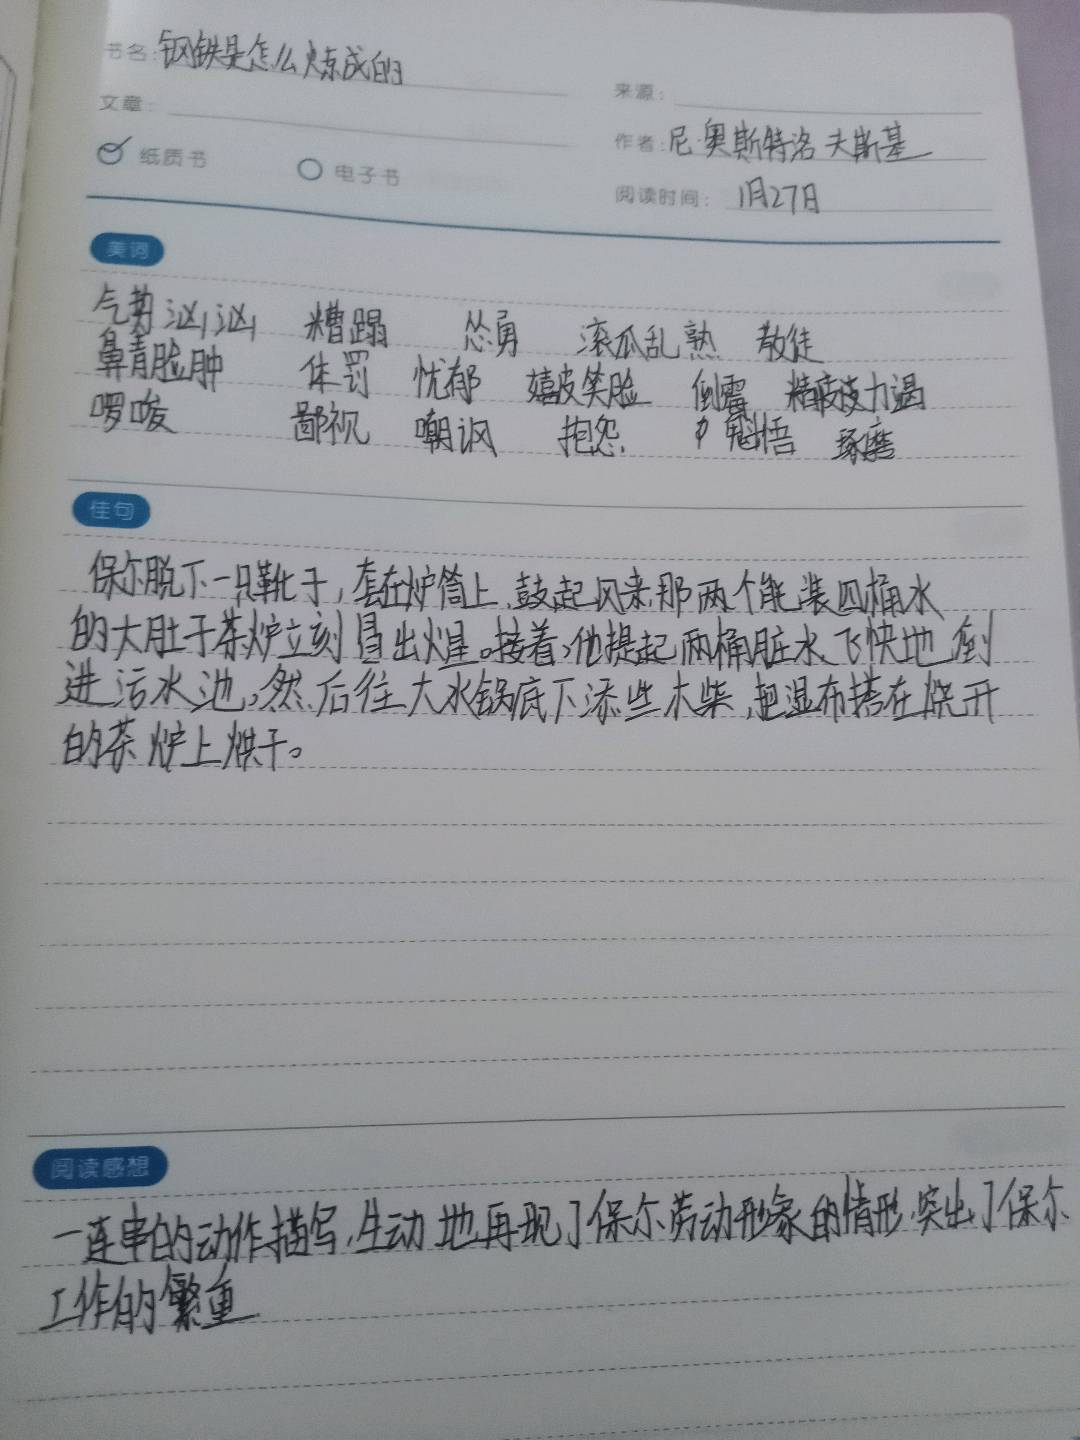 书名:钢铁是怎么炼成的
来源:
文章:
作者:尼·奥斯特洛夫斯基
纸质书 电子书
阅读时间: 1月27日
美词
气势汹汹 糟蹋 怂勇 滚瓜乱熟 教徒
鼻青脸肿 体罚 忧郁 嬉皮笑脸 倒霉 精疲力竭
啰唆 鄙视 嘲讽 抱怨 魁梧 琢磨
佳句
保尔脱下一只靴子,套在炉筒上,鼓起风来,那两个能装四桶水
的大肚子茶炉立刻冒出火星。接着,他提起两桶脏水飞快地倒
进污水池,然后往大水锅底下添些木柴,把湿布搭在烧开
的茶炉上烘干。
阅读感想
一连串的动作描写,生动地再现了保尔劳动形象的情形,突出了保尔
工作的繁重